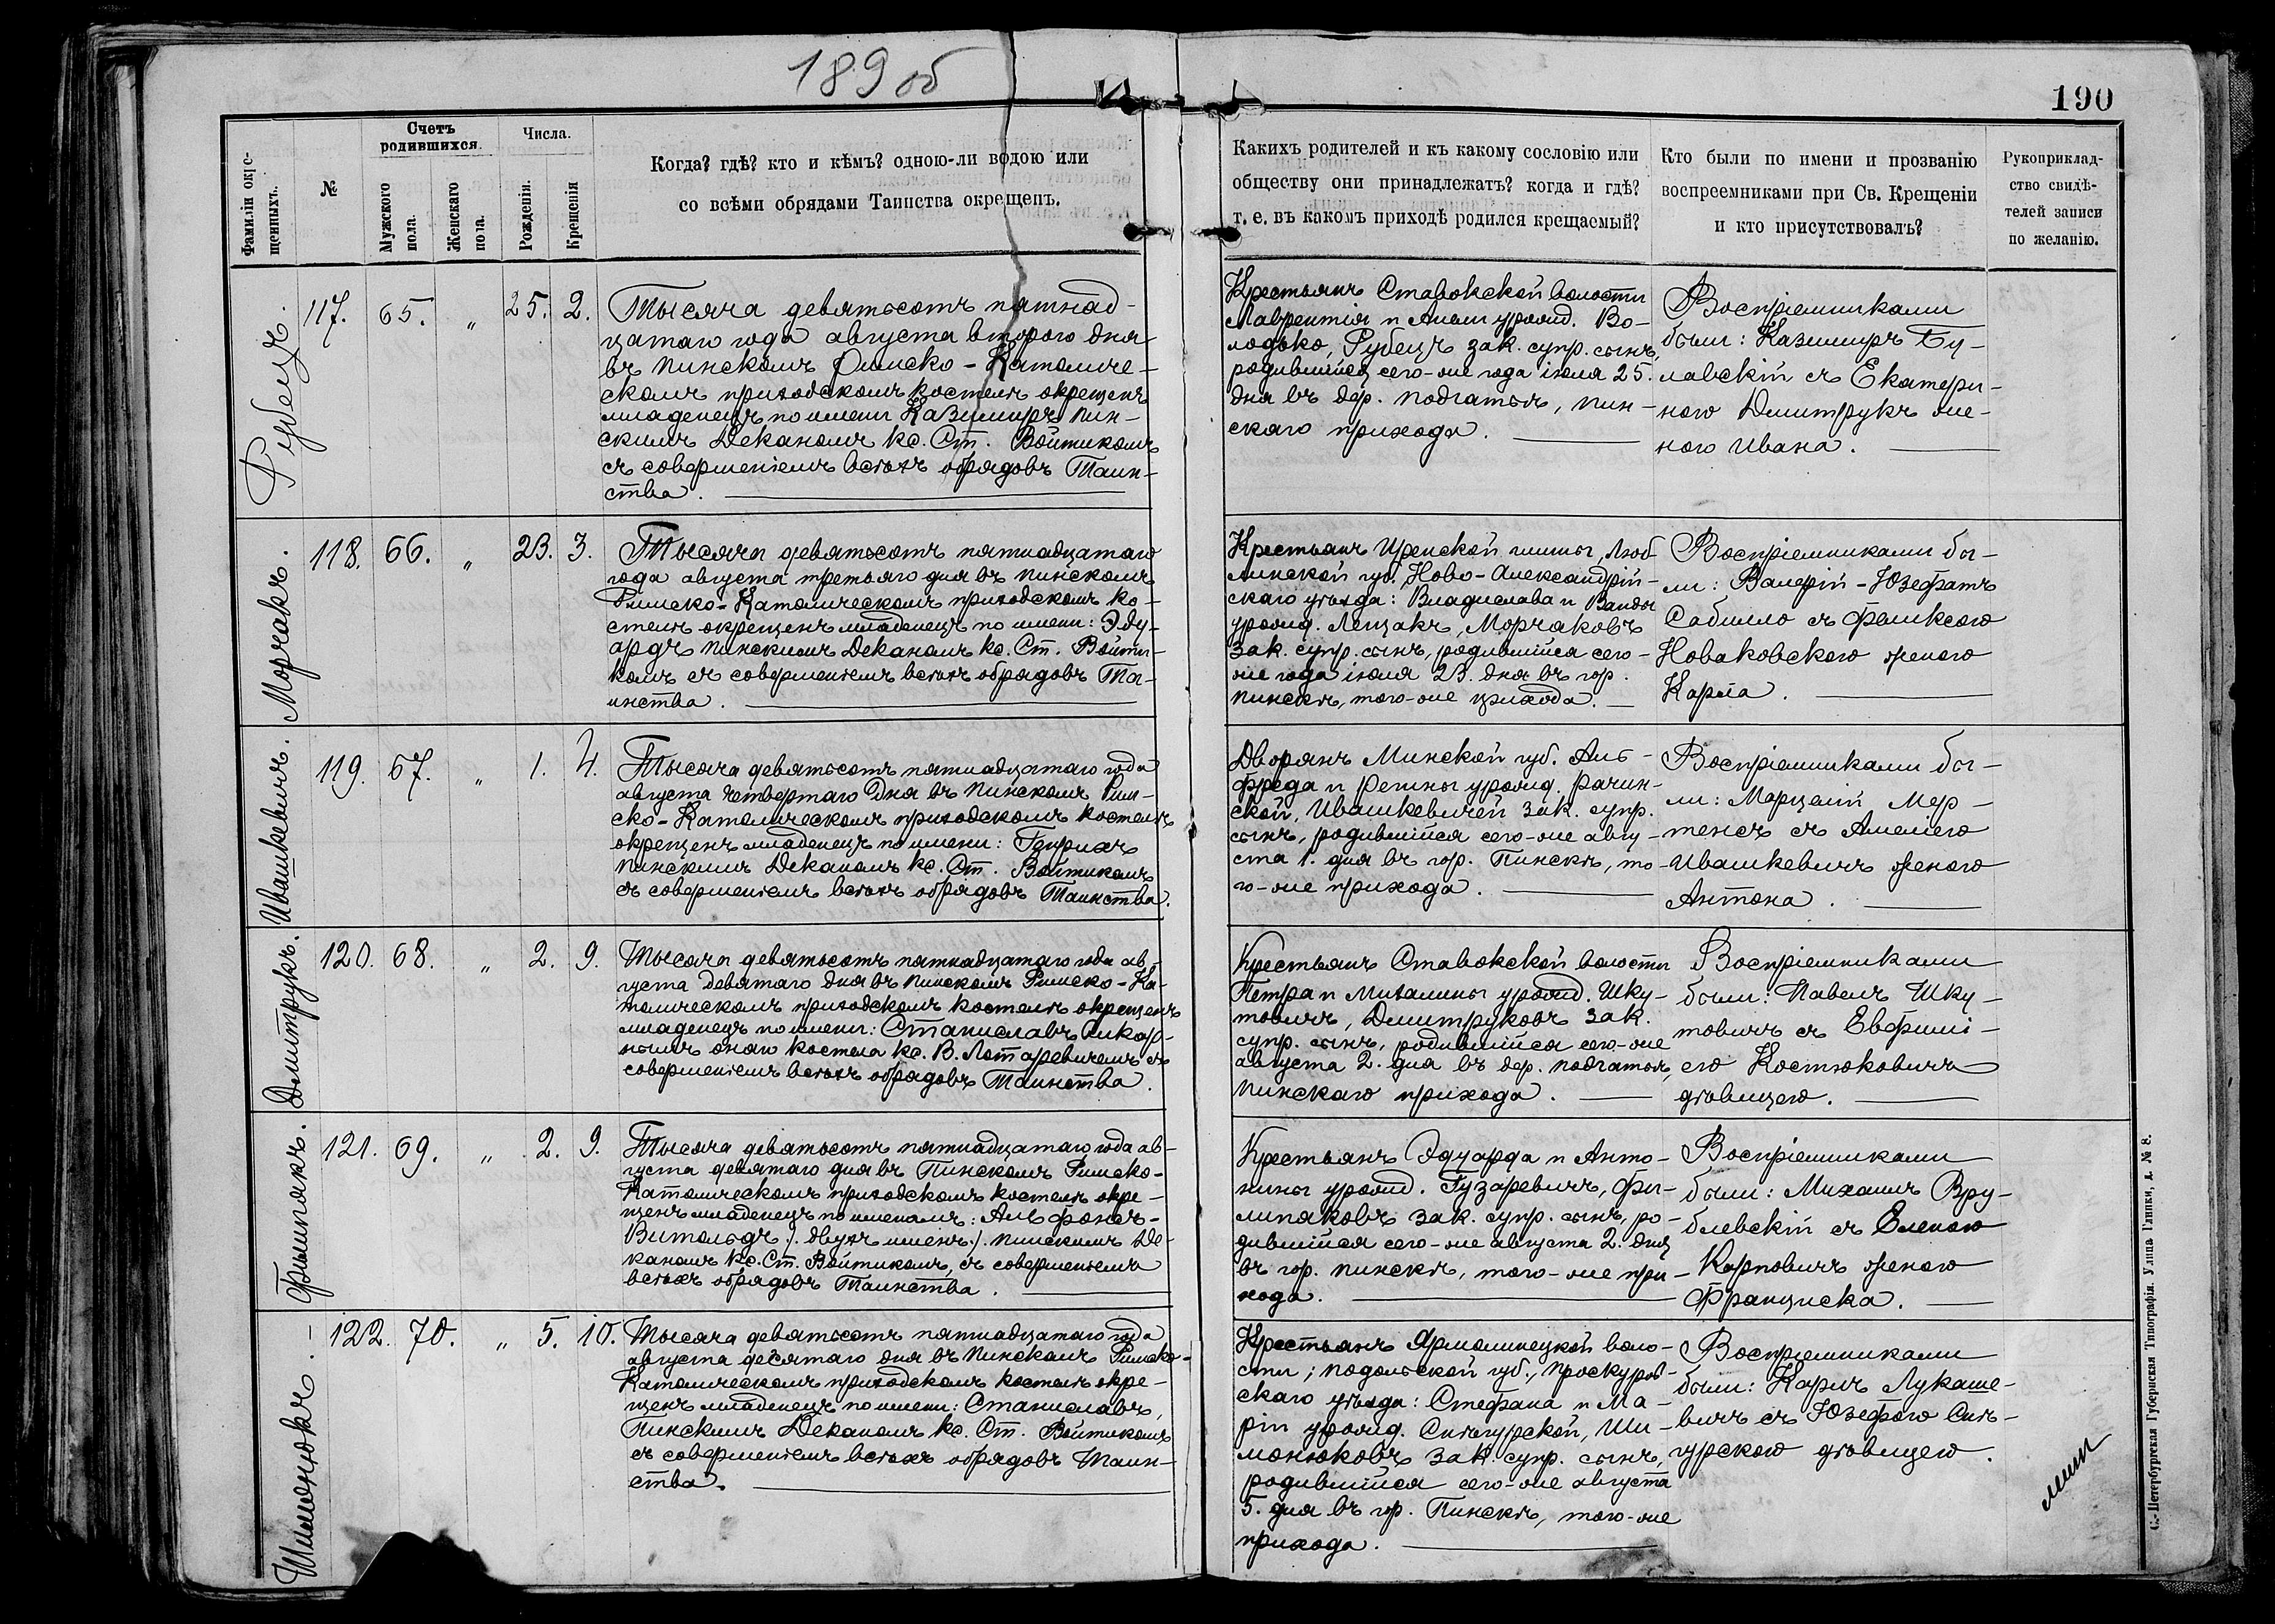 189 об
190
Фамиліи окре-
щенныхъ.
№
Счетъ
родившихся.
Мужскаго
пола.
Женскаго
пола.
Числа.
Рожденія.
Крещенія
Когда? гдѣ? кто и кѣмъ? одною-ли водою или
со всѣми обрядами Таинства окрещенъ.
Какихъ родителей и къ какому сословію или
обществу они принадлежатъ? когда и гдѣ?
т. е. въ какомъ приходѣ родился крещаемый?
Кто были по имени и прозванію
воспреемниками при Св. Крещеніи
и кто присутствовалъ?
Рукоприклад-
ство свидѣ-
телей записи
по желанію.
Рубецъ.
117. 65. „ 25. 2.
Тысяча девятьсотъ пятнад-
цатаго года августа второго дня
въ Пинскомъ Римско-Католиче-
скомъ приходскомъ костелѣ окрещенъ
младенецъ по имени Казимиръ Пин-
скимъ Деканомъ кс. Ст. Войтикомъ
съ совершеніемъ всѣхъ обрядовъ Таин-
ства.
Крестьянъ Ставокской волости
Лаврентія и Анны урожд. Во-
лодько, Рубецъ зак. супр. сынъ,
родившійся сего-же года іюля 25.
дня въ дер. Подгатье, Пин-
скаго прихода.
Воспріемниками
были: Казимиръ Бу-
лавскій съ Екатери-
ною Дмитрукъ же-
ною Ивана.
Морчакъ.
118. 66. „ 23. 3.
Тысяча девятьсотъ пятнадцатаго
года августа третьяго дня въ Пинскомъ
Римско-Католическомъ приходскомъ ко-
стелѣ окрещенъ младенецъ по имени: Эду-
ардъ Пинскимъ Деканомъ кс. Ст. Войти-
комъ съ совершеніемъ всѣхъ обрядовъ Та-
инства.
Крестьянъ Иренской гмины, Люб-
линской губ. Ново-Александрій-
скаго уѣзда: Владислава и Ванды
урожд. Лещакъ, Морчаковъ
зак. супр. сынъ, родившійся сего-
же года іюля 23. дня въ гор.
Пинскѣ, того-же прихода.
Воспріемниками бы-
ли: Валерій-Юзефатъ
Сабилло съ Феликсою
Новаковскою женою
Карла.
Ивашкевичъ.
119. 67. „ 1. 4.
Тысяча девятьсотъ пятнадцатаго года
августа четвертаго дня въ Пинскомъ Рим-
ско-Католическомъ приходскомъ костелѣ
окрещенъ младенецъ по имени: Генрихъ
Пинскимъ Деканомъ кс. Ст. Войтикомъ
съ совершеніемъ всѣхъ обрядовъ Таинства.
Дворянъ Минской губ. Аль-
фреда и Регины урожд. Рачин-
ской, Ивашкевичей зак. супр.
сынъ, родившійся сего-же авгу-
ста 1. дня въ гор. Пинскѣ, то-
го-же прихода.
Воспріемниками бы-
ли: Марцелій Мер-
тенсъ съ Амеліею
Ивашкевичъ женою
Антона.
Дмитрукъ.
120. 68. „ 2. 9.
Тысяча девятьсотъ пятнадцатаго года ав-
густа девятаго дня въ Пинскомъ Римско-Ка-
толическомъ приходскомъ костелѣ окрещенъ
младенецъ по имени: Станиславъ Викар-
нымъ онаго костела кс. В. Лотаревичемъ съ
совершеніемъ всѣхъ обрядовъ Таинства.
Крестьянъ Ставокской волости
Петра и Михалины урожд. Шку-
товичъ, Дмитруковъ зак.
супр. сынъ, родившійся сего-же
августа 2. дня въ дер. Подгатье,
Пинскаго прихода.
Воспріемниками
были: Павелъ Шку-
товичъ съ Евфимі-
ею Костюковичъ
дѣвицею.
Филипякъ.
121. 69. „ 2. 9.
Тысяча девятьсотъ пятнадцатаго года ав-
густа девятаго дня въ Пинскомъ Римско-
Католическомъ приходскомъ костелѣ окре-
щенъ младенецъ по именамъ: Альфонсъ-
Витольдъ ./. двухъ именъ ./. Пинскимъ Де-
каномъ кс. Ст. Войтикомъ, съ совершеніемъ
всѣхъ обрядовъ Таинства.
Крестьянъ Эдуарда и Анто-
нины урожд. Гузаревичъ, Фи-
липяковъ зак. супр. сынъ, ро-
дившійся сего-же августа 2. дня
въ гор. Пинскѣ, того-же при-
хода.
Воспріемниками
были: Михаилъ Вру-
блевскій съ Еленою
Карповичъ женою
Франциска.
Шимонюкъ.
122. 70. „ 5. 10.
Тысяча девятьсотъ пятнадцатаго года
августа десятаго дня въ Пинскомъ Римско-
Католическомъ приходскомъ костелѣ окре-
щенъ младенецъ по имени: Станиславъ,
Пинскимъ Деканомъ кс. Ст. Войтикомъ
съ совершеніемъ всѣхъ обрядовъ Таин-
ства.
Крестьянъ Ярмолинецкой воло-
сти; Подольской губ., Проскуров-
скаго уѣзда: Стефана и Ма-
ріи урожд. Снѣгурской, Ши-
монюковъ зак. супр. сынъ,
родившійся сего-же августа
5. дня въ гор. Пинскѣ, того-же
прихода.
Воспріемниками
были: Карлъ Лукаше-
вичъ съ Юзефою Снѣ-
гурскою дѣвицею.
С.-Петербургская Губернская Типографія. Улица Глинки, д. № 8.